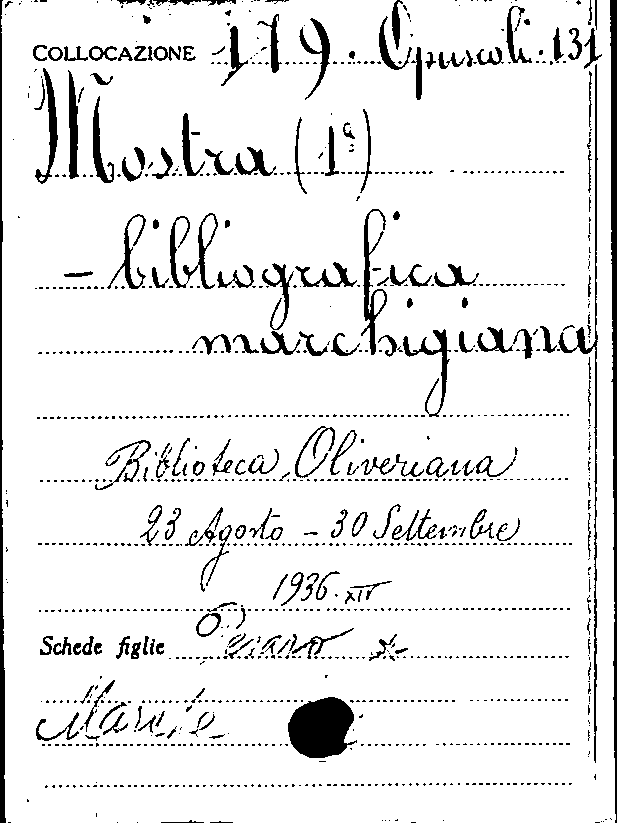 COLLOCAZIONE 179. Opuscoli. 131
Mostra (1ª)
- bibliografica
marchigiana
Biblioteca Oliveriana
23 Agosto - 30 Settembre
1936. XIV
Schede figlie Pesaro
Marche